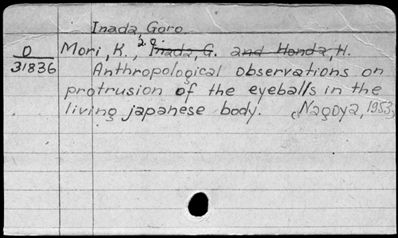 Inada, Goro.
D Mori, K., Inada, G. and Honda, H.
31836 Anthropological observations on
protrusion of the eyeballs in the
living japanese body. (Nagoya, 1953)